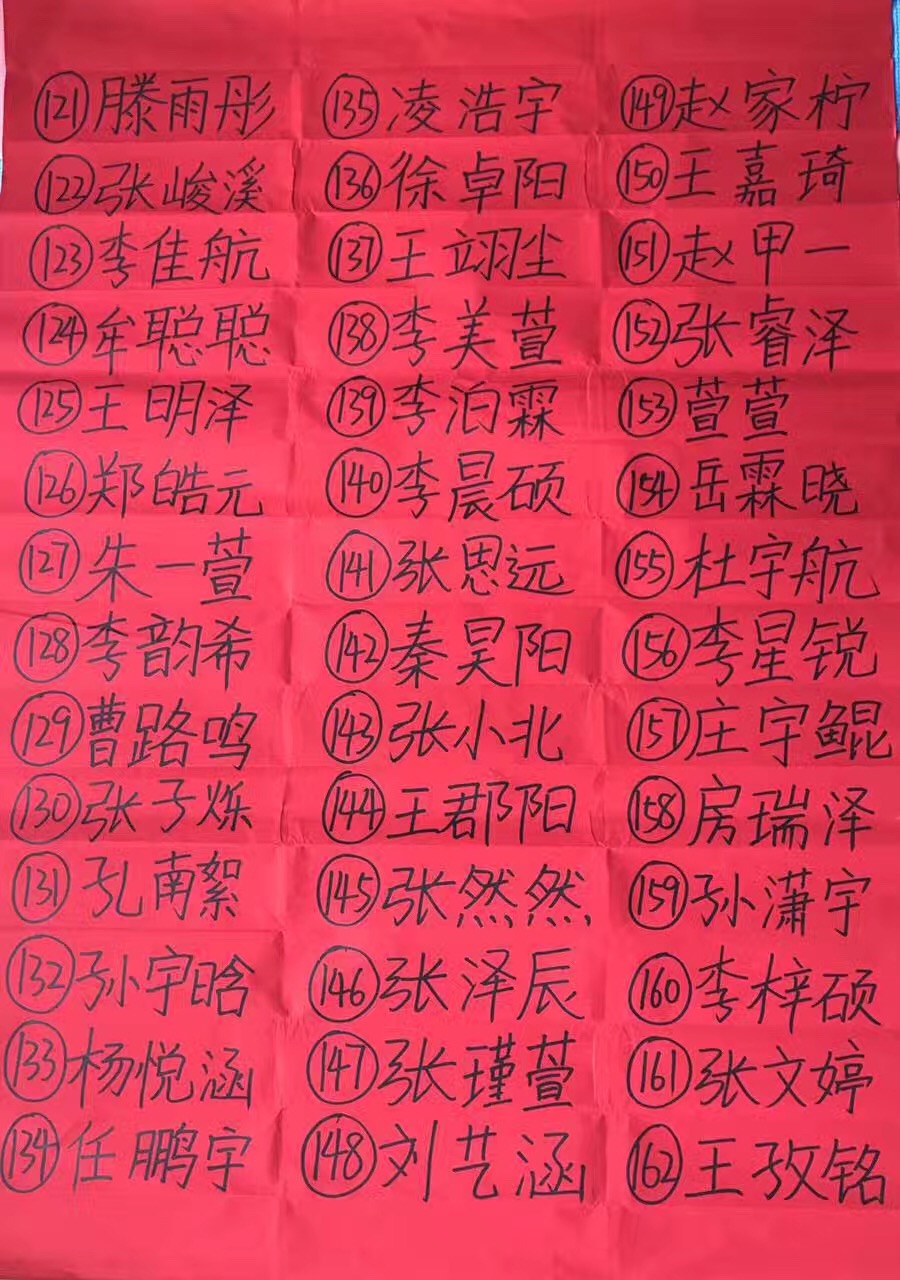 121 滕雨彤
122 张峻溪
123 李佳航
124 牟聪聪
125 王明泽
126 郑皓元
127 朱一萱
128 李韵希
129 曹路鸣
130 张子烁
131 孔南絮
132 孙宇晗
133 杨悦涵
134 任鹏宇
135 凌浩宇
136 徐卓阳
137 王翊尘
138 李美萱
139 李泊霖
140 李晨硕
141 张思远
142 秦昊阳
143 张小北
144 王郡阳
145 张然然
146 张泽辰
147 张瑾萱
148 刘艺涵
149 赵家柠
150 王嘉琦
151 赵甲一
152 张睿泽
153 萱萱
154 岳霖晓
155 杜宇航
156 李星锐
157 庄宇鲲
158 房瑞泽
159 孙潇宇
160 李梓硕
161 张文婷
162 王孜铭